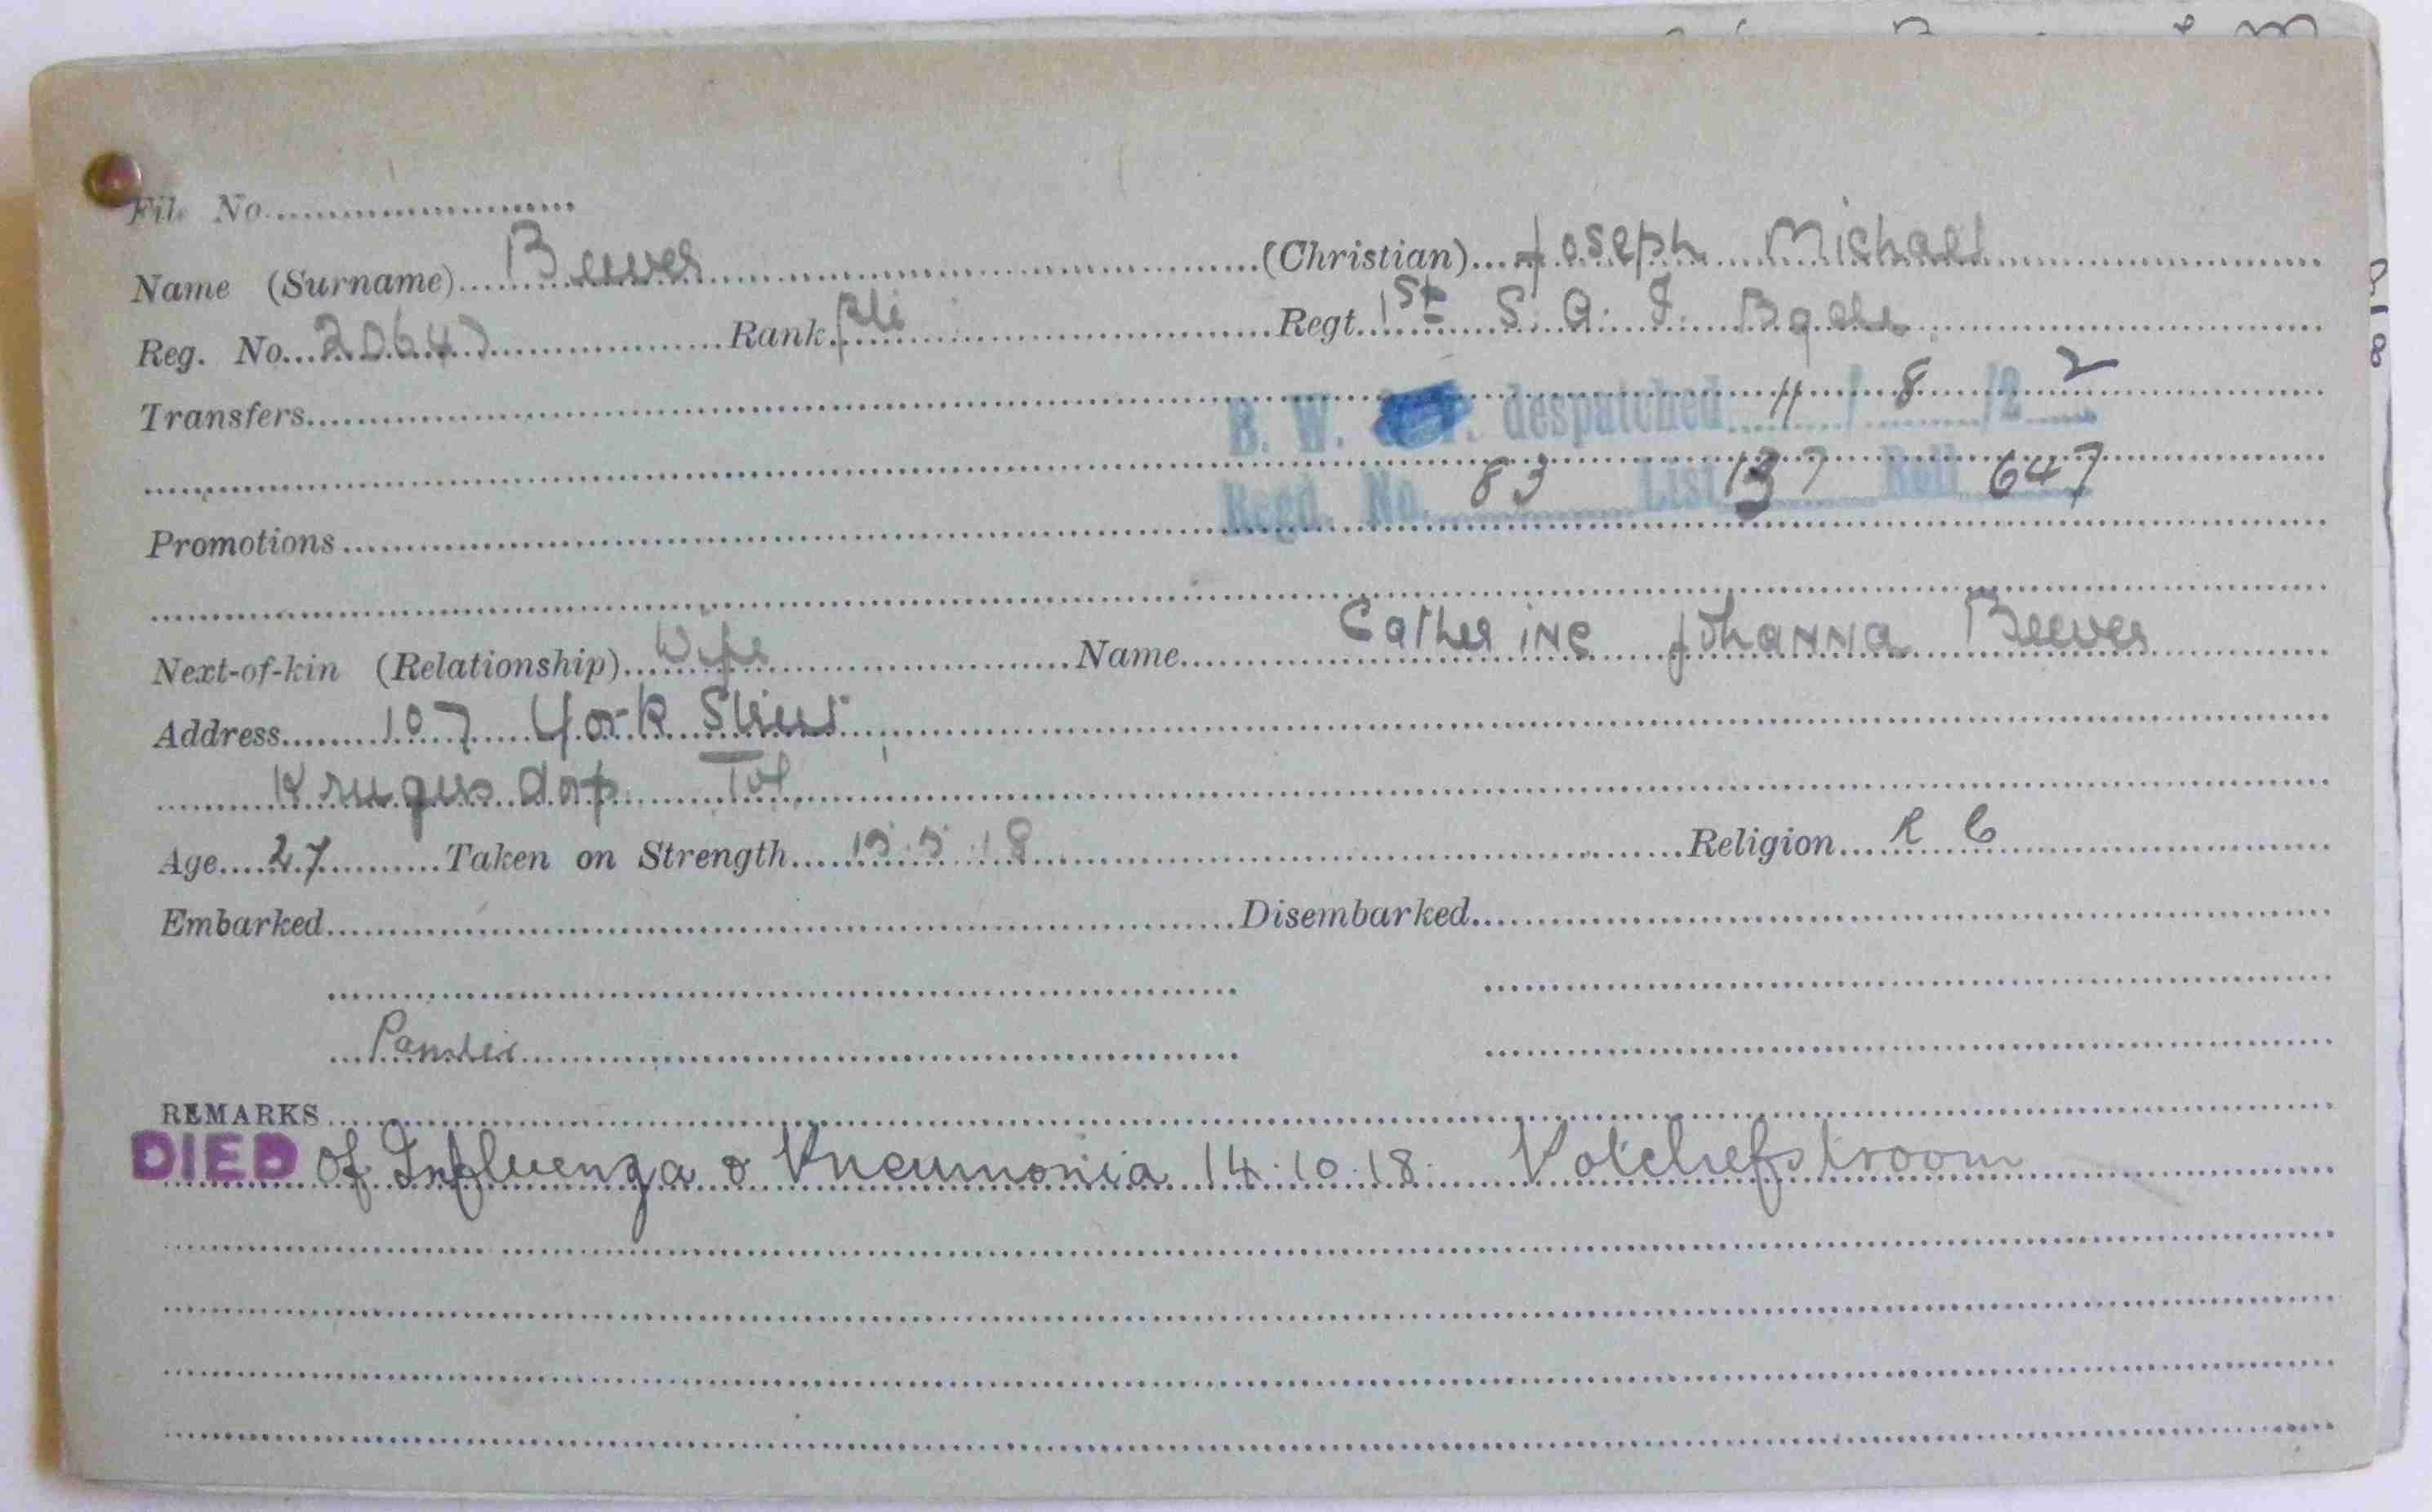 File No.
Name (Surname) Beeves (Christian) Joseph Michael
Reg. No. 20647 Rank Pte Regt. 1st S. A. I. Bgde
Transfers
B. W. despatched 11 / 8 /22
Regd. No. 83 List 137 Roll 647
Promotions
Next-of-kin (Relationship) Wife Name Catherine Johanna Beeves
Address 107 York Street
Krugersdorp Tvl
Age 27 Taken on Strength 15.5.18 Religion R C
Embarked Disembarked
REMARKS
DIED of Influenza & Pneumonia 14.10.18. Potchefstroom